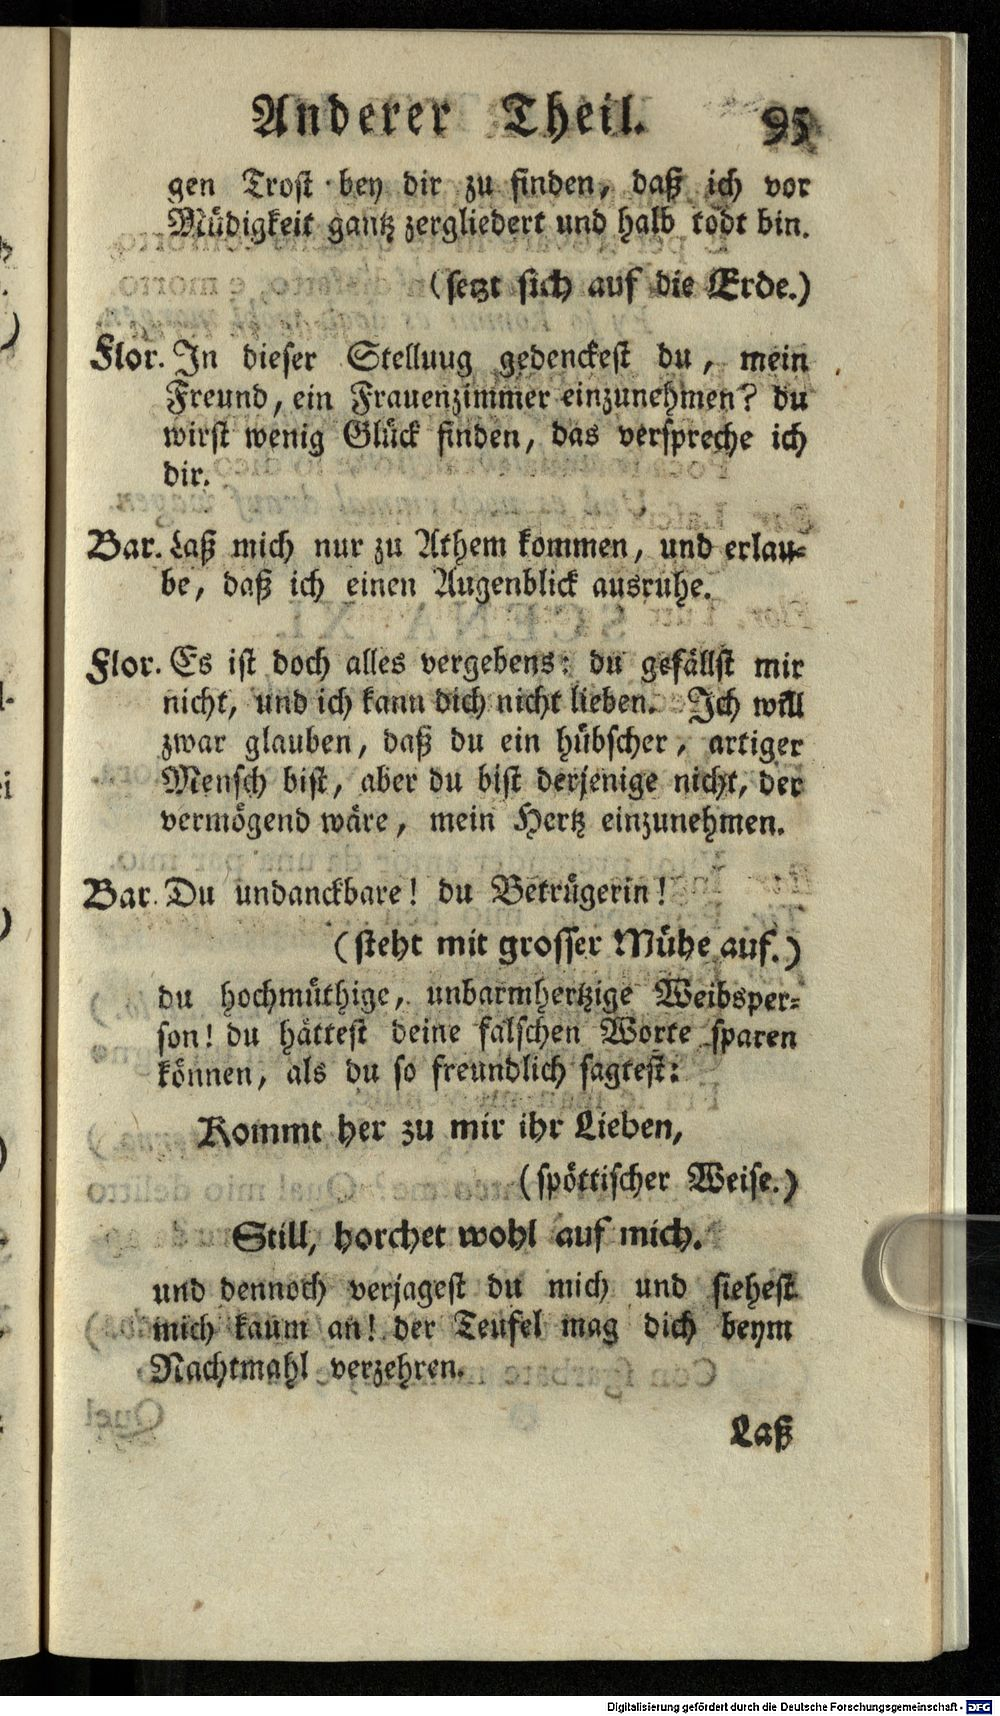 Anderer Theil. 95
gen Trost bey dir zu finden, daß ich vor
Müdigkeit gantz zergliedert und halb todt bin.
(setzt sich auf die Erde.)
Flor. In dieser Stelluug gedenckest du, mein
Freund, ein Frauenzimmer einzunehmen? du
wirst wenig Glück finden, das verspreche ich
dir.
Bar. Laß mich nur zu Athem kommen, und erlau-
be, daß ich einen Augenblick ausruhe.
Flor. Es ist doch alles vergebens: du gefällst mir
nicht, und ich kann dich nicht lieben. Ich will
zwar glauben, daß du ein hübscher, artiger
Mensch bist, aber du bist derjenige nicht, der
vermögend wäre, mein Hertz einzunehmen.
Bar. Du undanckbare! du Betrügerin!
(steht mit grosser Mühe auf.)
du hochmüthige, unbarmhertzige Weibsper-
son! du hättest deine falschen Worte sparen
können, als du so freundlich sagtest:
Kommt her zu mir ihr Lieben,
(spöttischer Weise.)
Still, horchet wohl auf mich.
und dennoch verjagest du mich und siehest
mich kaum an! der Teufel mag dich beym
Nachtmahl verzehren.
Laß
Digitalisierung gefördert durch die Deutsche Forschungsgemeinschaft - DFG